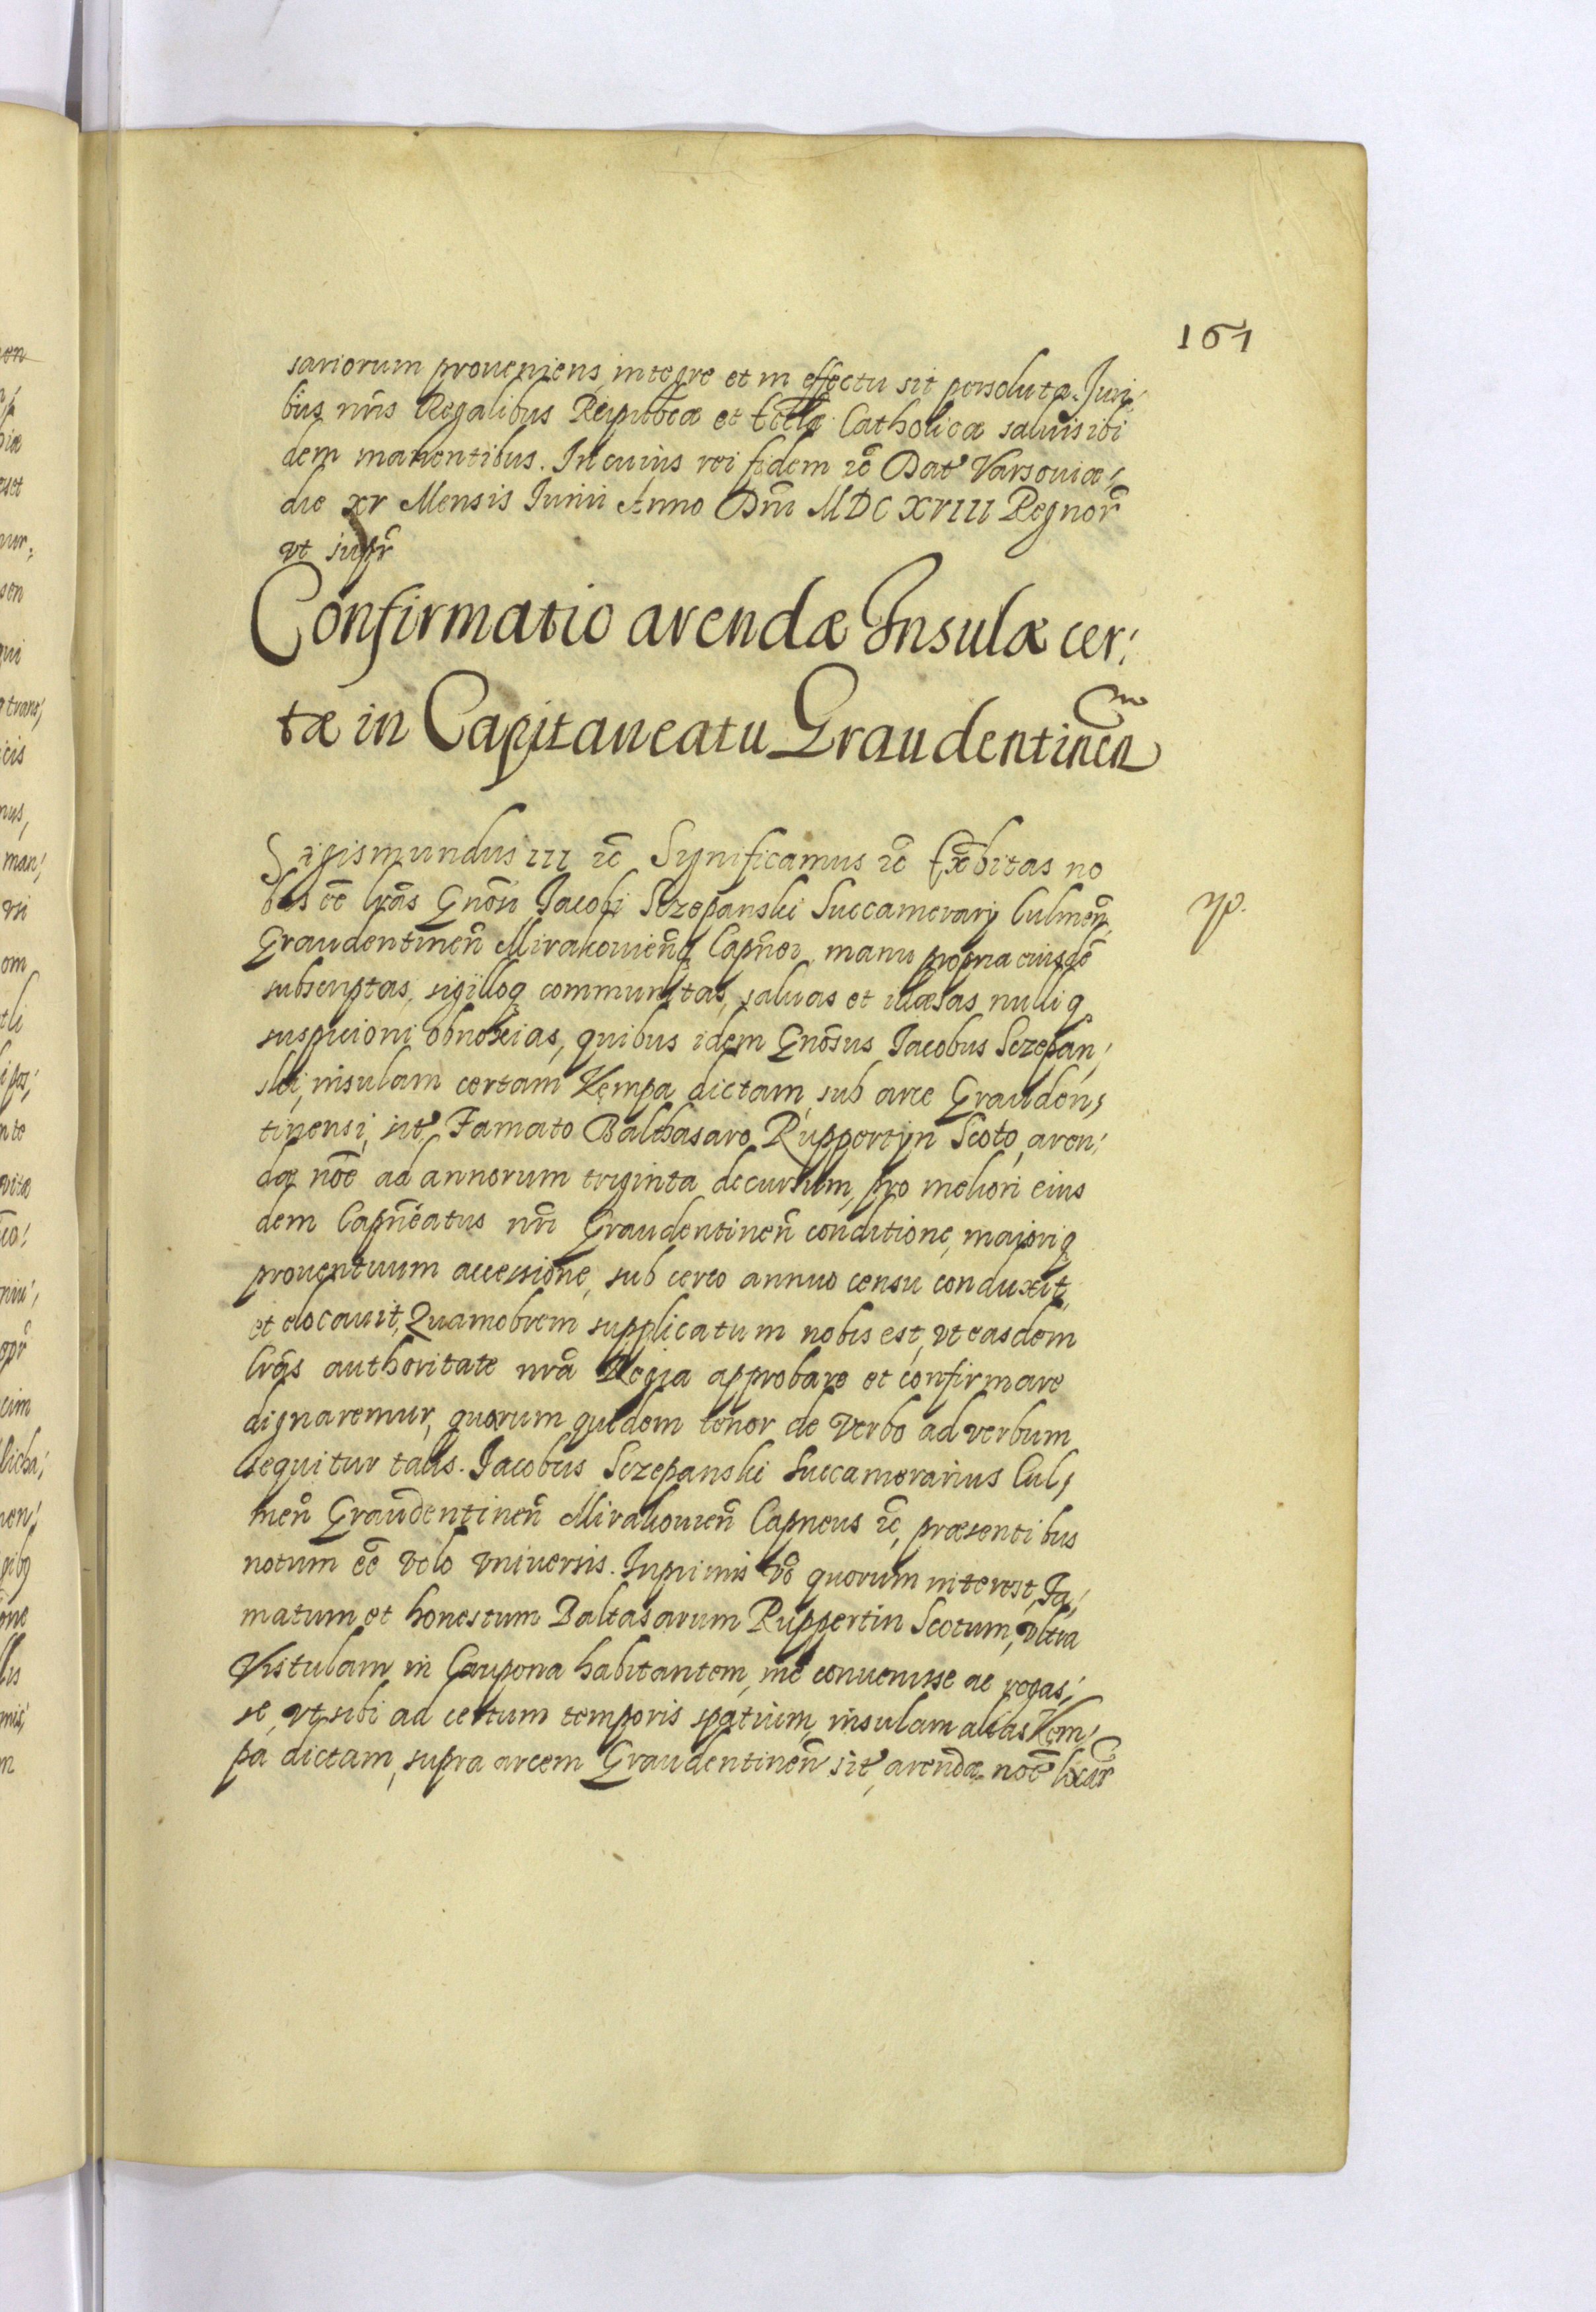 161
sariorum proueniens, integre et in effectu sit persoluta. Juri,
bus nr̃is Regalibus Reipub̃cæ et Eccl̃æ Catholicæ saluis ibi
dem manentibus. In cuius rei fidem ꝛc̃ Dat' Varsouiæ,
die xv Mensis Junii Anno Dn̄i MDCXVIII Regnor̃
vt supr̃
Confirmatio arendæ Insulæ cer,
tæ in Capitaneatu Graudentinen̄
Sigismundus III ꝛc̃ Significamus ꝛc̃ Exhibitas no
bis eē lr̃as Gnōsi Jacobi Sczepanski Succamerarij Culmen̄,
yp.
Graudentinen̄ Mirakouien̄q Capn̄ei, manu propria eiusdē
subscriptas, sigilloq communitas, saluas et illæsas nulliq
suspicioni obnoxias, quibus idem Gnōsus Jacobus Sczepan,
ski, insulam certam Kempa dictam, sub arce Grauden,
tinensi, sit' Famato Balthasaro Ruppertyn Scoto, aren,
dæ nōe ad annorum triginta decursum, pro meliori eius
dem Capn̄eatus nr̃i Graudentinen̄ conditione, majoriq
prouentuum accessione, sub certo annuo censu conduxit,
et elocauit, Quamobrem supplicatum nobis est, vt easdem
lr̃as authoritate nr̃a Regia approbare et confirmare
dignaremur, quarum quidem tenor de verbo ad verbum
sequitur talis. Jacobus Sczepanski Succamerarius Cul,
men̄ Graudentinen̄ Mirakouien̄ Capneus ꝛc̃, præsentibus
notum eē volo vniuersis. Inprimis vō quorum interest, Fa,
matum et honestum Baltasarum Ruppertin Scotum, vltra
Vistulam in Caupona habitantem, me conuenisse ac rogas,
se, vt sibi ad certum temporis spatium, insulam alias Kem,
pa dictam, supra arcem Graudentinen̄ sit', arendæ nōe locar̃